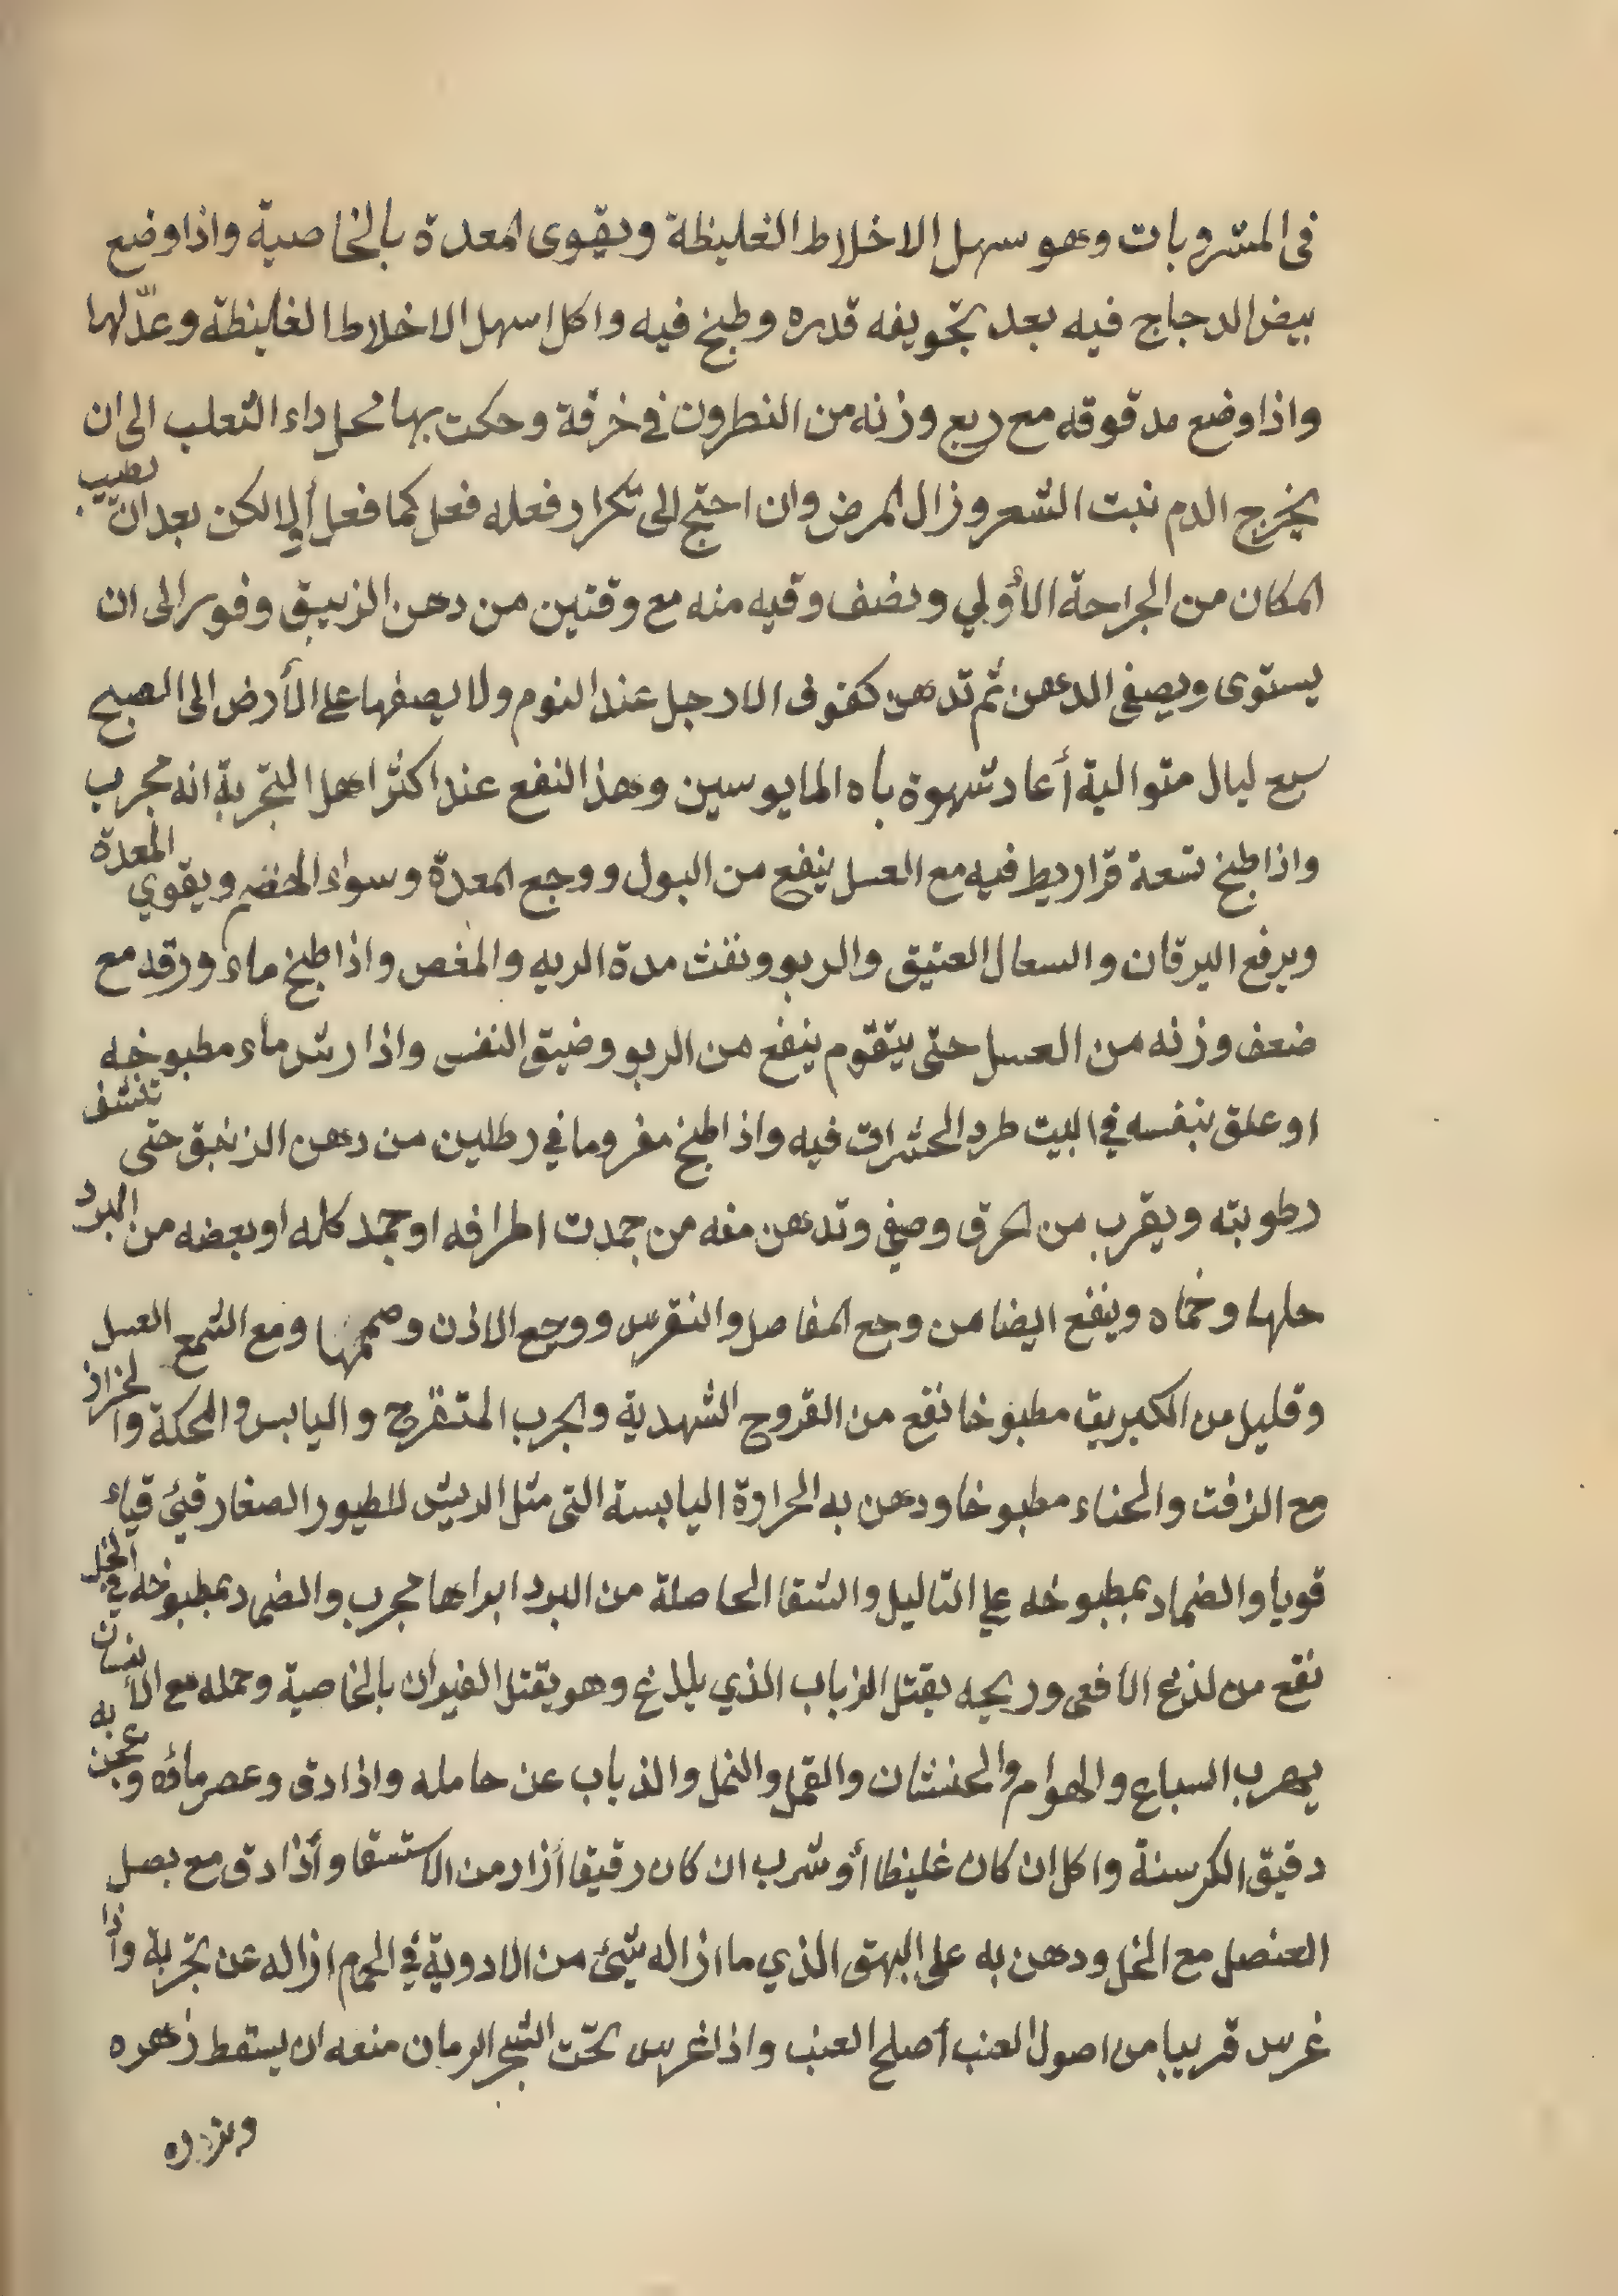 فى المشروبات وهو سهل الاخلاط الغليظة ويقوى المعدة بالخاصية واذا وضع
بيض الدجاج فيه بعد تجويفه قدره وطبخ فيه واكل اسهل الاخلاط الغليظة وعدّلها
واذا وضع مدقوقه مع ربع وزنه من النطرون في خرقة وحكت بها محل داء الثعلب الى ان
يخرج الدم نبت الشعر وزال المرض وان احتج الى تكرار فعله فعل كما فعل أولا لكن بعد ان تطيب
المكان من الجراحة الأولي ونصف وقيه منه مع وقتين من دهن الزيبق وفور الى ان
يستوى ويصفى الدهن ثم تدهن كفوف الارجل عند النوم ولا يصفها على الأرض الى الصبح
سبع ليال متوالية أعاد شهوة باه المايوسين وهذ النفع عند اكثر اهل التجربة انه مجرب
واذا طبخ تسعة قراريط فيه مع العسل ينفع من البول ووجع المعدة وسواء الهضم ويقوي المعدة
ويرفع اليرقان والسعال العتيق والربو ونفث مدة الريه والمغص واذا طبخ ماء ورقه مع
ضعف وزنه من العسل حتى يتقوم ينفع من الربو وضيق النفس واذا رش ماء مطبوخه
او علق بنفسه في البيت طرد الحشرات فيه واذا طبخ مفروما في رطلين من دهن الزنبق حتى تنشف
رطوبته ويقرب من الحرق وصفي وتدهن منه من جمدت اطرافه او جمد كله او بعضه من البرد
حلها وخماه وينفع ايضا من وجع المفاصل والنقرس ووجع الاذن وصممها ومع الشمع العسل
وقليل من الكبريت مطبوخا نفع من القروح الشهدية والجرب المتقرح واليابس والحكة والخزاز
مع الزفت والحناء مطبوخا ودهن به الحرارة اليابسة التى مثل الريش للطيور الصغار قئ قياء
قويا والضماد بمطبوخه علي الثاليل والشقا الحاصلة من البرد ابراها مجرب والضماد بمطبوخه في الخل
نفع من لذع الافعى وريحه يقتل الزباب الذي يلدغ وهو يقتل الفيران بالخاصية وحمله مع الأنسان
يهرب السباع والهوام والحنشان والقمل والنمل والذباب عن حامله واذا دق وعصر مائه وعجن به
دقيق الكرسنة واكل ان كان غليظا أو شرب ان كان رقيقا أزاد من الاستسقا وأذا دق مع بصل
العنصل مع الخل ودهن به على البهق الذي ما ازاله شيئ من الادوية في الحمام ازاله عن تجربة واذا
غرس قريبا من اصول العنب أصلح العنب واذا غرس تحت الشجر الرمان منعه ان يسقط زهره